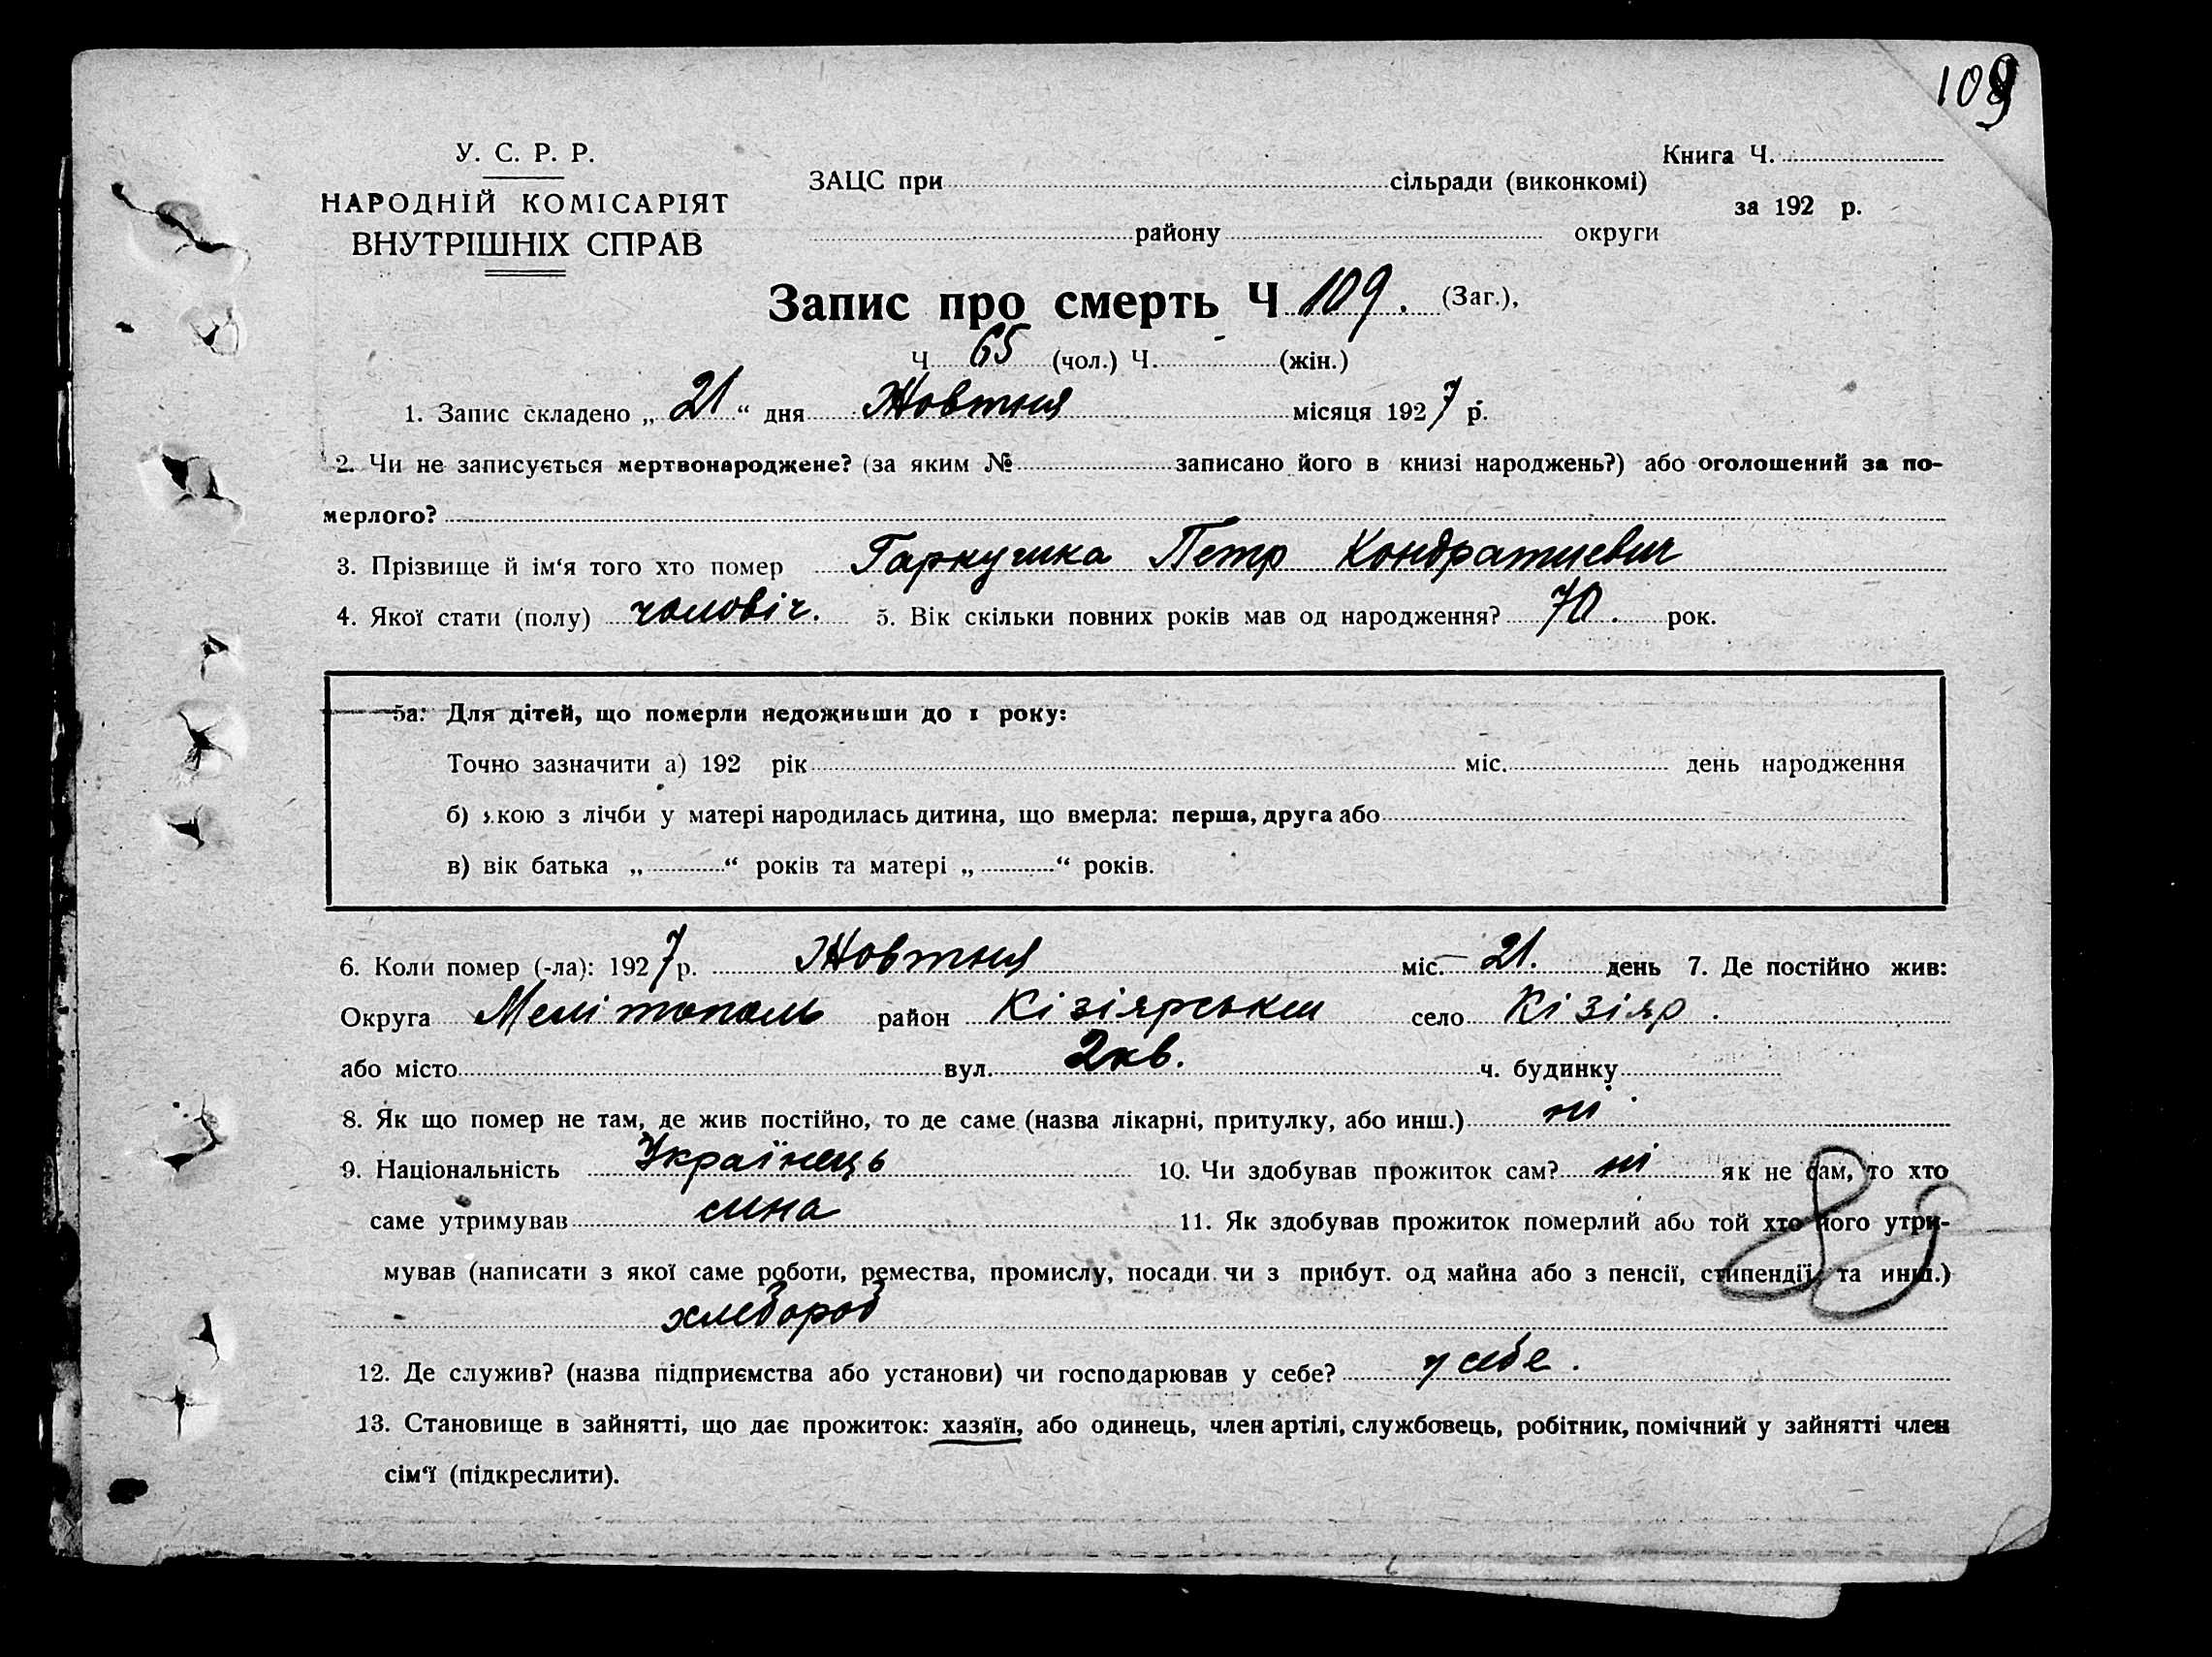 109
У. С. Р. Р.
НАРОДНІЙ КОМІСАРІЯТ
ВНУТРІШНІХ СПРАВ
ЗАЦС при сільради (виконкомі)
району округи
Книга Ч.
за 192 р.
Запис про смерть Ч 109. (Заг.),
Ч 65 (чол.) Ч. - (жін.)
1. Запис складено „ 21 “ дня Жовтня місяця 1927 р.
2. Чи не записується мертвонароджене? (за яким № записано його в книзі народжень?) або оголошений за по-
мерлого?
3. Прізвище й ім‘я того хто помер Гаркушка Петр Кондратиевич
4. Якої стати (полу) чоловіч. 5. Вік скільки повних років мав од народження? 70. рок.
5а: Для дітей, що померли недоживши до 1 року:
Точно зазначити а) 192 рік міс. день народження
б) якою з лічби у матері народилась дитина, що вмерла: перша, друга або
в) вік батька „ “ років та матері „ “ років.
6. Коли помер (-ла): 1927 р. Жовтня міс. 21. день 7. Де постійно жив:
Округа Мелітополь район Кізіярськи село Кізіяр.
або місто вул. 2 кв. ч. будинку
8. Як що помер не там, де жив постійно, то де саме (назва лікарні, притулку, або инш.) ні
9. Національність Українець 10. Чи здобував прожиток сам? ні як не сам, то хто
саме утримував сина 11. Як здобував прожиток померлий або той хто його утри-
мував (написати з якої саме роботи, ремества, промислу, посади чи з прибут. од майна або з пенсії, стипендії, та инш.)
89
хлебороб
12. Де служив? (назва підприємства або установи) чи господарював у себе? у себе.
13. Становище в зайнятті, що дає прожиток: хазяїн, або одинець, член артілі, службовець, робітник, помічний у зайнятті член
сім‘ї (підкреслити).